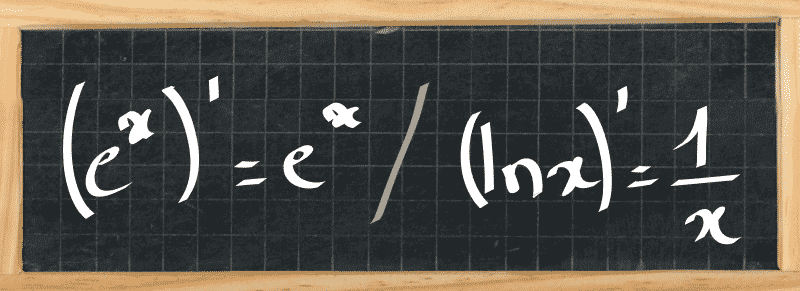 (eˣ)' = eˣ / (ln x)' = 1/x